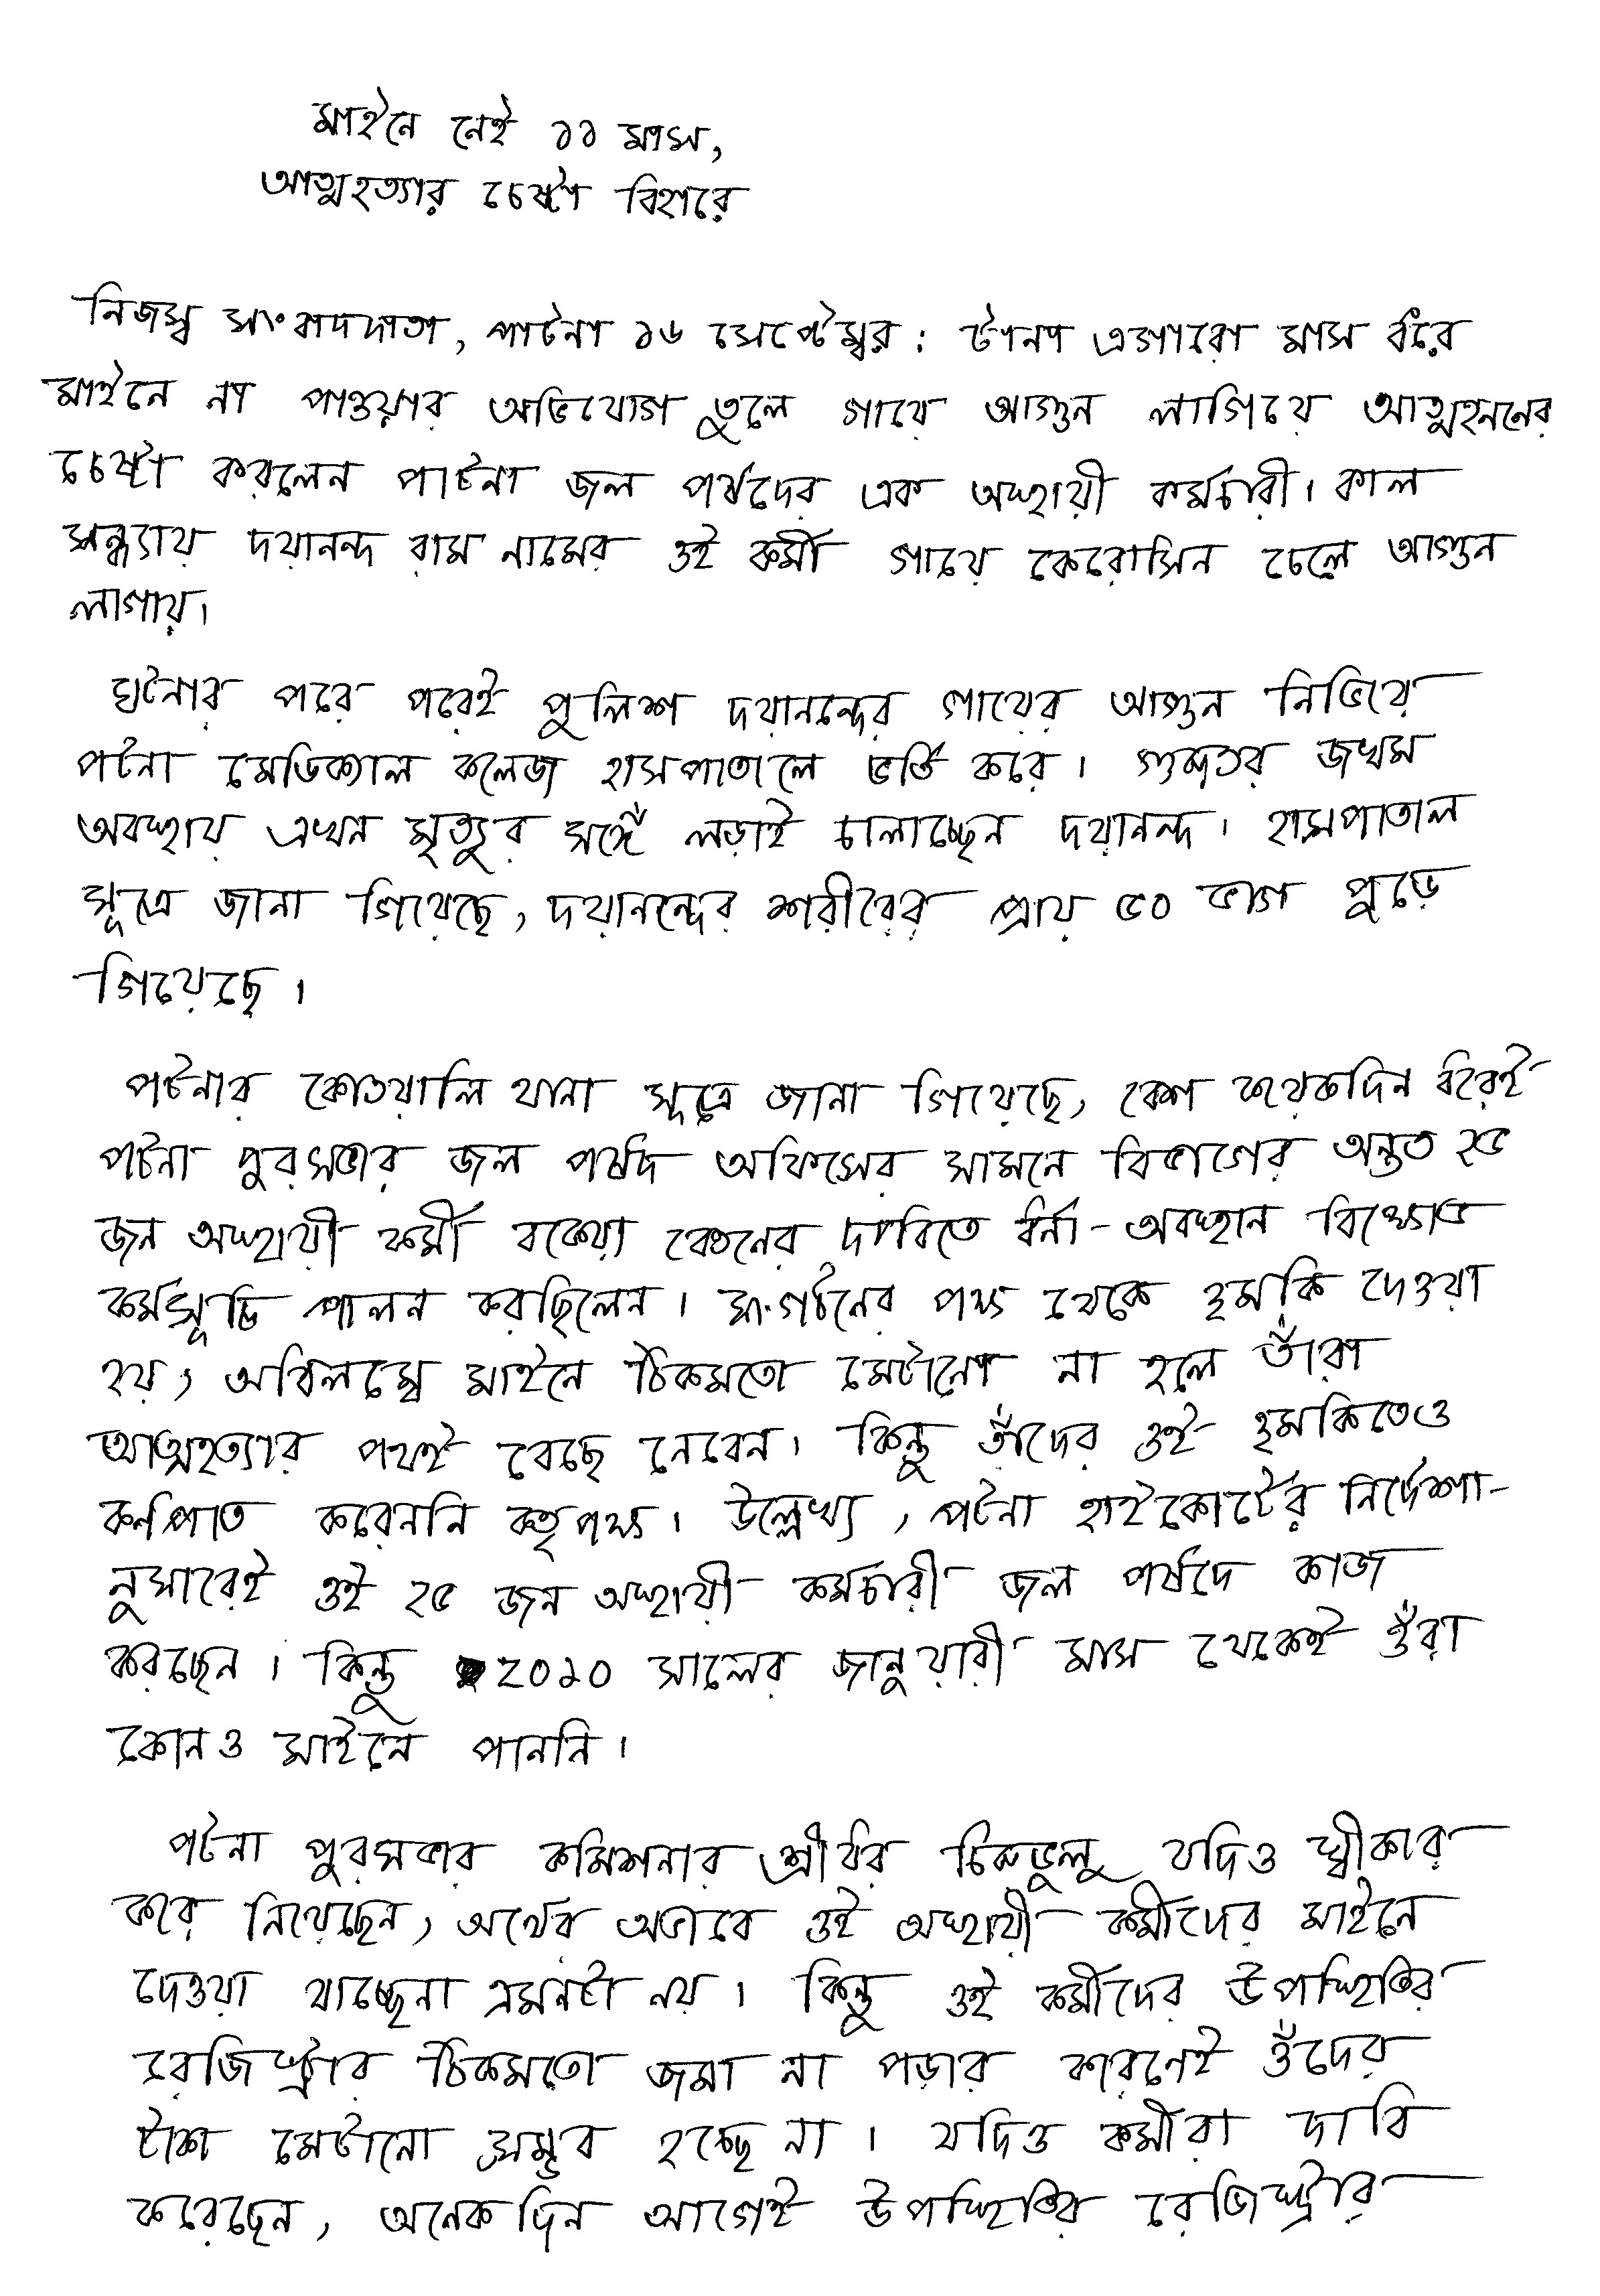 মাইনে নেই ১১ মাস,
আত্মহত্যার চেষ্টা বিহারে
নিজস্ব সংবাদদাতা, পাটনা ১৬ সেপ্টেম্বর : টানা এগারো মাস ধরে
মাইনে না পাওয়ার অভিযোগ তুলে গায়ে আগুন লাগিয়ে আত্মহননের
চেষ্টা করলেন পাটনা জল পর্ষদের এক অস্থায়ী কর্মচারী। কাল
সন্ধ্যায় দয়ানন্দ রাম নামের ওই কর্মী গায়ে কেরোসিন ঢেলে আগুন
লাগায়।
ঘটনার পরে পরেই পুলিশ দয়ানন্দের গায়ের আগুন নিভিয়ে
পটনা মেডিক্যাল কলেজ হাসপাতালে ভর্তি করে। গুরুতর জখম
অবস্থায় এখন মৃত্যুর সঙ্গে লড়াই চালাচ্ছেন দয়ানন্দ। হাসপাতাল
সূত্রে জানা গিয়েছে, দয়ানন্দের শরীরের প্রায় ৫০ ভাগ পুড়ে
গিয়েছে।
পটনার কোতয়ালি থানা সূত্রে জানা গিয়েছে, বেশ কয়েকদিন ধরেই
পটনা পুরসভার জল পর্ষদ অফিসের সামনে বিভাগের অন্তত ২৫
জন অস্থায়ী কর্মী বকেয়া বেতনের দাবিতে ধর্না-অবস্থান বিক্ষোভ
কর্মসূচি পালন করছিলেন। সংগঠনের পক্ষ থেকে হুমকি দেওয়া
হয়, অবিলম্বে মাইনে ঠিকমতো মেটানো না হলে তাঁরা
আত্মহত্যার পথই বেছে নেবেন। কিন্তু তাঁদের ওই হুমকিতেও
কর্ণপাত করেননি কর্তৃপক্ষ। উল্লেখ্য, পটনা হাইকোর্টের নির্দেশা-
নুসারেই ওই ২৫ জন অস্থায়ী কর্মচারী জল পর্ষদে কাজ
করছেন। কিন্তু ২০১০ সালের জানুয়ারী মাস থেকেই ওঁরা
কোনও মাইনে পাননি।
পটনা পুরসভার কমিশনার শ্রীধর চিরুভুলু যদিও স্বীকার
করে নিয়েছেন, অর্থের অভাবে ওই অস্থায়ী কর্মীদের মাইনে
দেওয়া যাচ্ছেনা এমনটা নয়। কিন্তু ওই কর্মীদের উপস্থিতির
রেজিস্ট্রার ঠিকমতো জমা না পড়ার কারনেই ওঁদের
টাকা মেটানো সম্ভব হচ্ছে না। যদিও কর্মীরা দাবি
করেছেন, অনেকদিন আগেই উপস্থিতির রেজিস্ট্রার